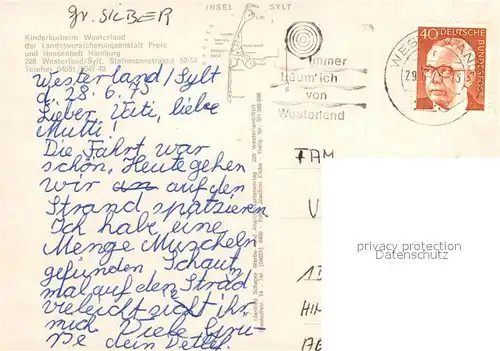 gr. SILBER
INSEL SYLT
Kinderkurheim Westerland
der Landesversicherungsanstalt Freie
und Hansestadt Hamburg
228 Westerland/Sylt,
Telefon
Westerland/Sylt
d. 28.6.73
Lieber Vati, liebe
Mutti!
Die Fahrt war
schön. Heute gehen
wir auf den
Strand spatzieren
Ich habe eine
Menge Muscheln
gefunden Schaut
mal auf den Strad
vieleicht zieht ihr
mich Viele Grü-
ße dein Detlef.
Immer
träum' ich
von
Westerland
40
DEUTSCHE BUNDESPOST
FAM
privacy protection
Datenschutz